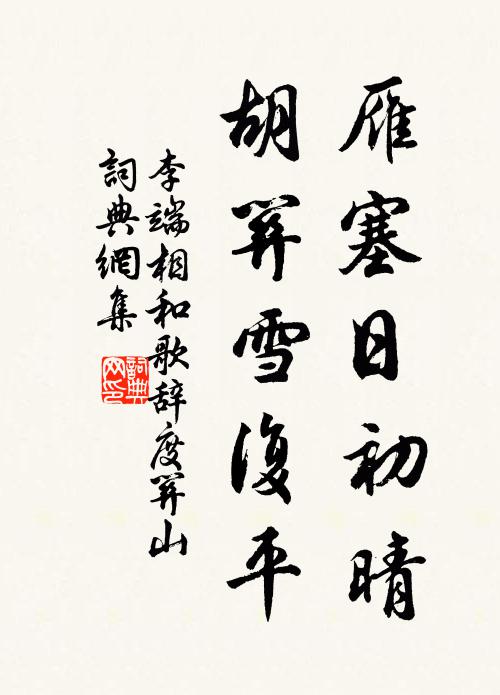 雁塞日初晴
胡関雪復平
李端相和歌辞度関山
詞典網集
詞典
网印